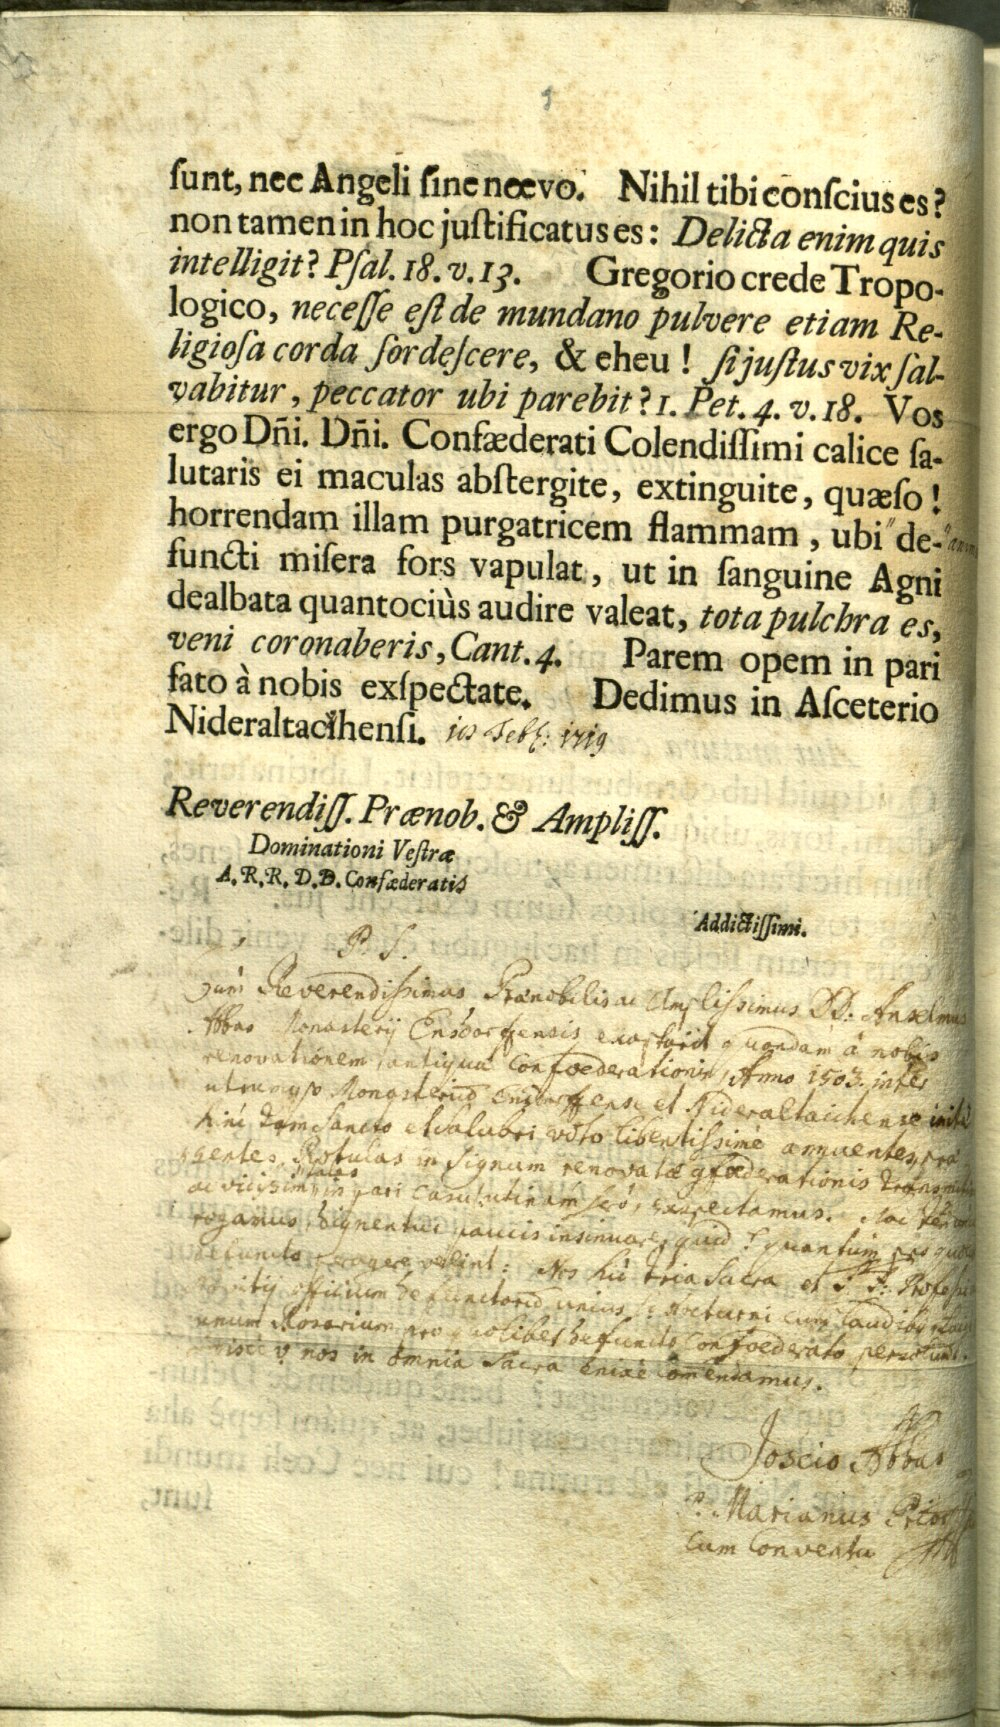 sunt, nec Angeli sine nœvo. Nihil tibi conscius es?
non tamen in hoc justificatus es: Delicta enim quis
intelligit? Psal. 18. v. 13. Gregorio crede Tropo-
logico, necesse est de mundano pulvere etiam Re-
ligiosa corda sordescere, & eheu! si justus vix sal-
vabitur, peccator ubi parebit? 1. Pet. 4. v. 18. Vos
ergo Dñi. Dñi. Confæderati Colendissimi calice sa-
lutaris ei maculas abstergite, extinguite, quæso!
horrendam illam purgatricem flammam, ubi " de-
functi misera fors vapulat, ut in sanguine Agni
dealbata quantociùs audire valeat, tota pulchra es,
veni coronaberis, Cant. 4. Parem opem in pari
fato à nobis exspectate. Dedimus in Asceterio
Nideraltacihensi. 1719
Reverendiss. Prænob. & Ampliss.
Dominationi Vestræ
A. R. R. D. D. Confæderatis
Addictissimi.
P. S.
Reverendissimus Prænobilis ac Amplissimus DD: Anselmus
Abbas Monasterij quondam à nobis
renovationem antiquæ Confoederationis, Anno 1503. inter
et Nideraltaichense
tam sancto et salubri voto libentissimè annuentes,
Rotulas in signum renovatæ
pari casu exspectamus.
rogamus, dignentur paucis insinuare, quid et quantum pro
defuncto peragere velint: Nos tria Sacra et
officium defunctorum unius nocturni cum laudibus
unum Rosarium pro quolibet defuncto Confoederato persolvunt.
nos in omnia Sacra enixè comendamus.
Joscio Abbas
P. Marianus Prior
Cum Conventu